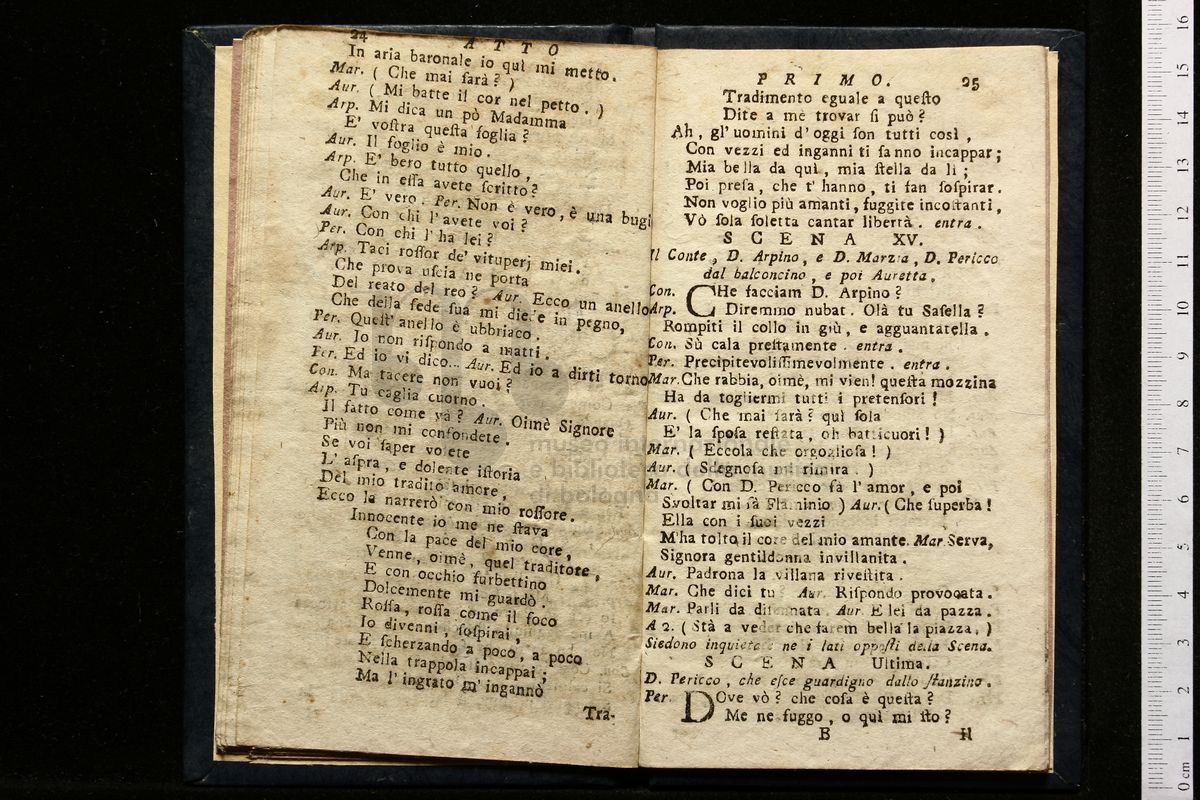 24 ATTO
In aria baronale io quì mi metto.
Mar. ( Che mai ſarà? )
Aur. ( Mi batte il cor nel petto. )
Arp. Mi dica un pò Madamma
E' voſtra queſta foglia?
Aur. Il foglio è mio.
Arp. E' bero tutto quello,
Che in eſſa avete ſcritto?
Aur. E' vero. Per. Non è vero, è una bugi
Aur. Con chi l'avete voi?
Per. Con chi l'ha lei?
Arp. Taci roſſor de' vituperj miei.
Che prova uſcia ne porta
Del reato del reo? Aur. Ecco un anello
Che della fede ſua mi diede in pegno,
Per. Queſt' anello è ubbriaco.
Aur. Io non riſpondo a matti.
Per. Ed io vi dico... Aur. Ed io a dirti torno
Con. Ma tacere non vuoi?
Arp. Tu caglia cuorno.
Il fatto come và? Aur. Oimè Signore
Più non mi confondete.
Se voi ſaper volete
L' aſpra, e dolente iſtoria
Del mio tradito amore,
Ecco la narrerò con mio roſſore.
Innocente io me ne ſtava
Con la pace del mio core,
Venne, oimè, quel traditore,
E con occhio furbettino
Dolcemente mi guardò.
Roſſa, roſſa come il foco
Io divenni, ſoſpirai,
E ſcherzando a poco, a poco
Nella trappola incappai;
Ma l' ingrato m' ingannò
Tra-
PRIMO. 25
Tradimento eguale a queſto
Dite a me trovar ſi può?
Ah, gl' uomini d' oggi ſon tutti così,
Con vezzi ed inganni ti fanno incappar;
Mia bella da quì, mia ſtella da lì;
Poi preſa, che t' hanno, ti fan ſoſpirar.
Non voglio più amanti, fuggite incoſtanti,
Vò ſola ſoletta cantar libertà. entra.
SCENA XV.
Il Conte, D. Arpino, e D. Marzia, D. Pericco
dal balconcino, e poi Auretta.
Con. CHe facciam D. Arpino?
Arp. Diremmo nubat. Olà tu Saſella?
Rompiti il collo in giù, e agguantatella.
Con. Sù cala preſtamente. entra.
Per. Precipitevoliſſimevolmente. entra.
Mar. Che rabbia, oimè, mi vien! queſta mozzina
Ha da togliermi tutti i pretenſori!
Aur. ( Che mai ſarà? quì ſola
E' la ſpoſa reſtata, oh batticuori! )
Mar. ( Eccola che orgoglioſa! )
Aur. ( Sdegnoſa mi rimira. )
Mar. ( Con D. Pericco fà l' amor, e poi
Svoltar mi fà Flaminio. ) Aur. ( Che ſuperba!
Ella con i ſuoi vezzi
M'ha tolto il core del mio amante. Mar. Serva,
Signora gentildonna invillanita.
Aur. Padrona la villana riveſtita.
Mar. Che dici tu? Aur. Riſpondo provocata.
Mar. Parli da diſennata. Aur. E lei da pazza.
A 2. ( Stà a veder che farem bella la piazza. )
Siedono inquietate ne i lati oppoſti della Scena.
SCENA Ultima.
D. Pericco, che eſce guardigno dallo ſtanzino.
Per. DOve vò? che coſa è queſta?
Me ne fuggo, o quì mi ſto?
B Il